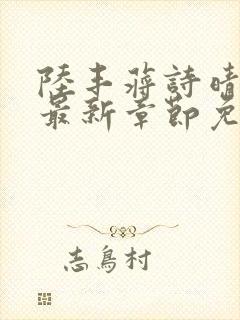 陸丰蔣詩晴
最新章節免
志鳥村